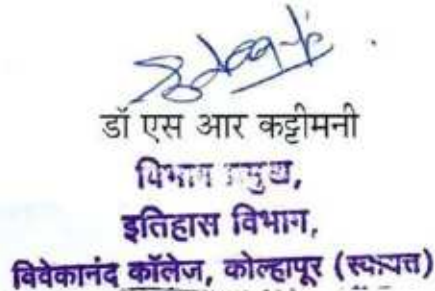 डॉ एस आर कट्टीमनी
विभाग प्रमुख,
इतिहास विभाग,
विवेकानंद कॉलेज, कोल्हापूर (स्वायत्त)